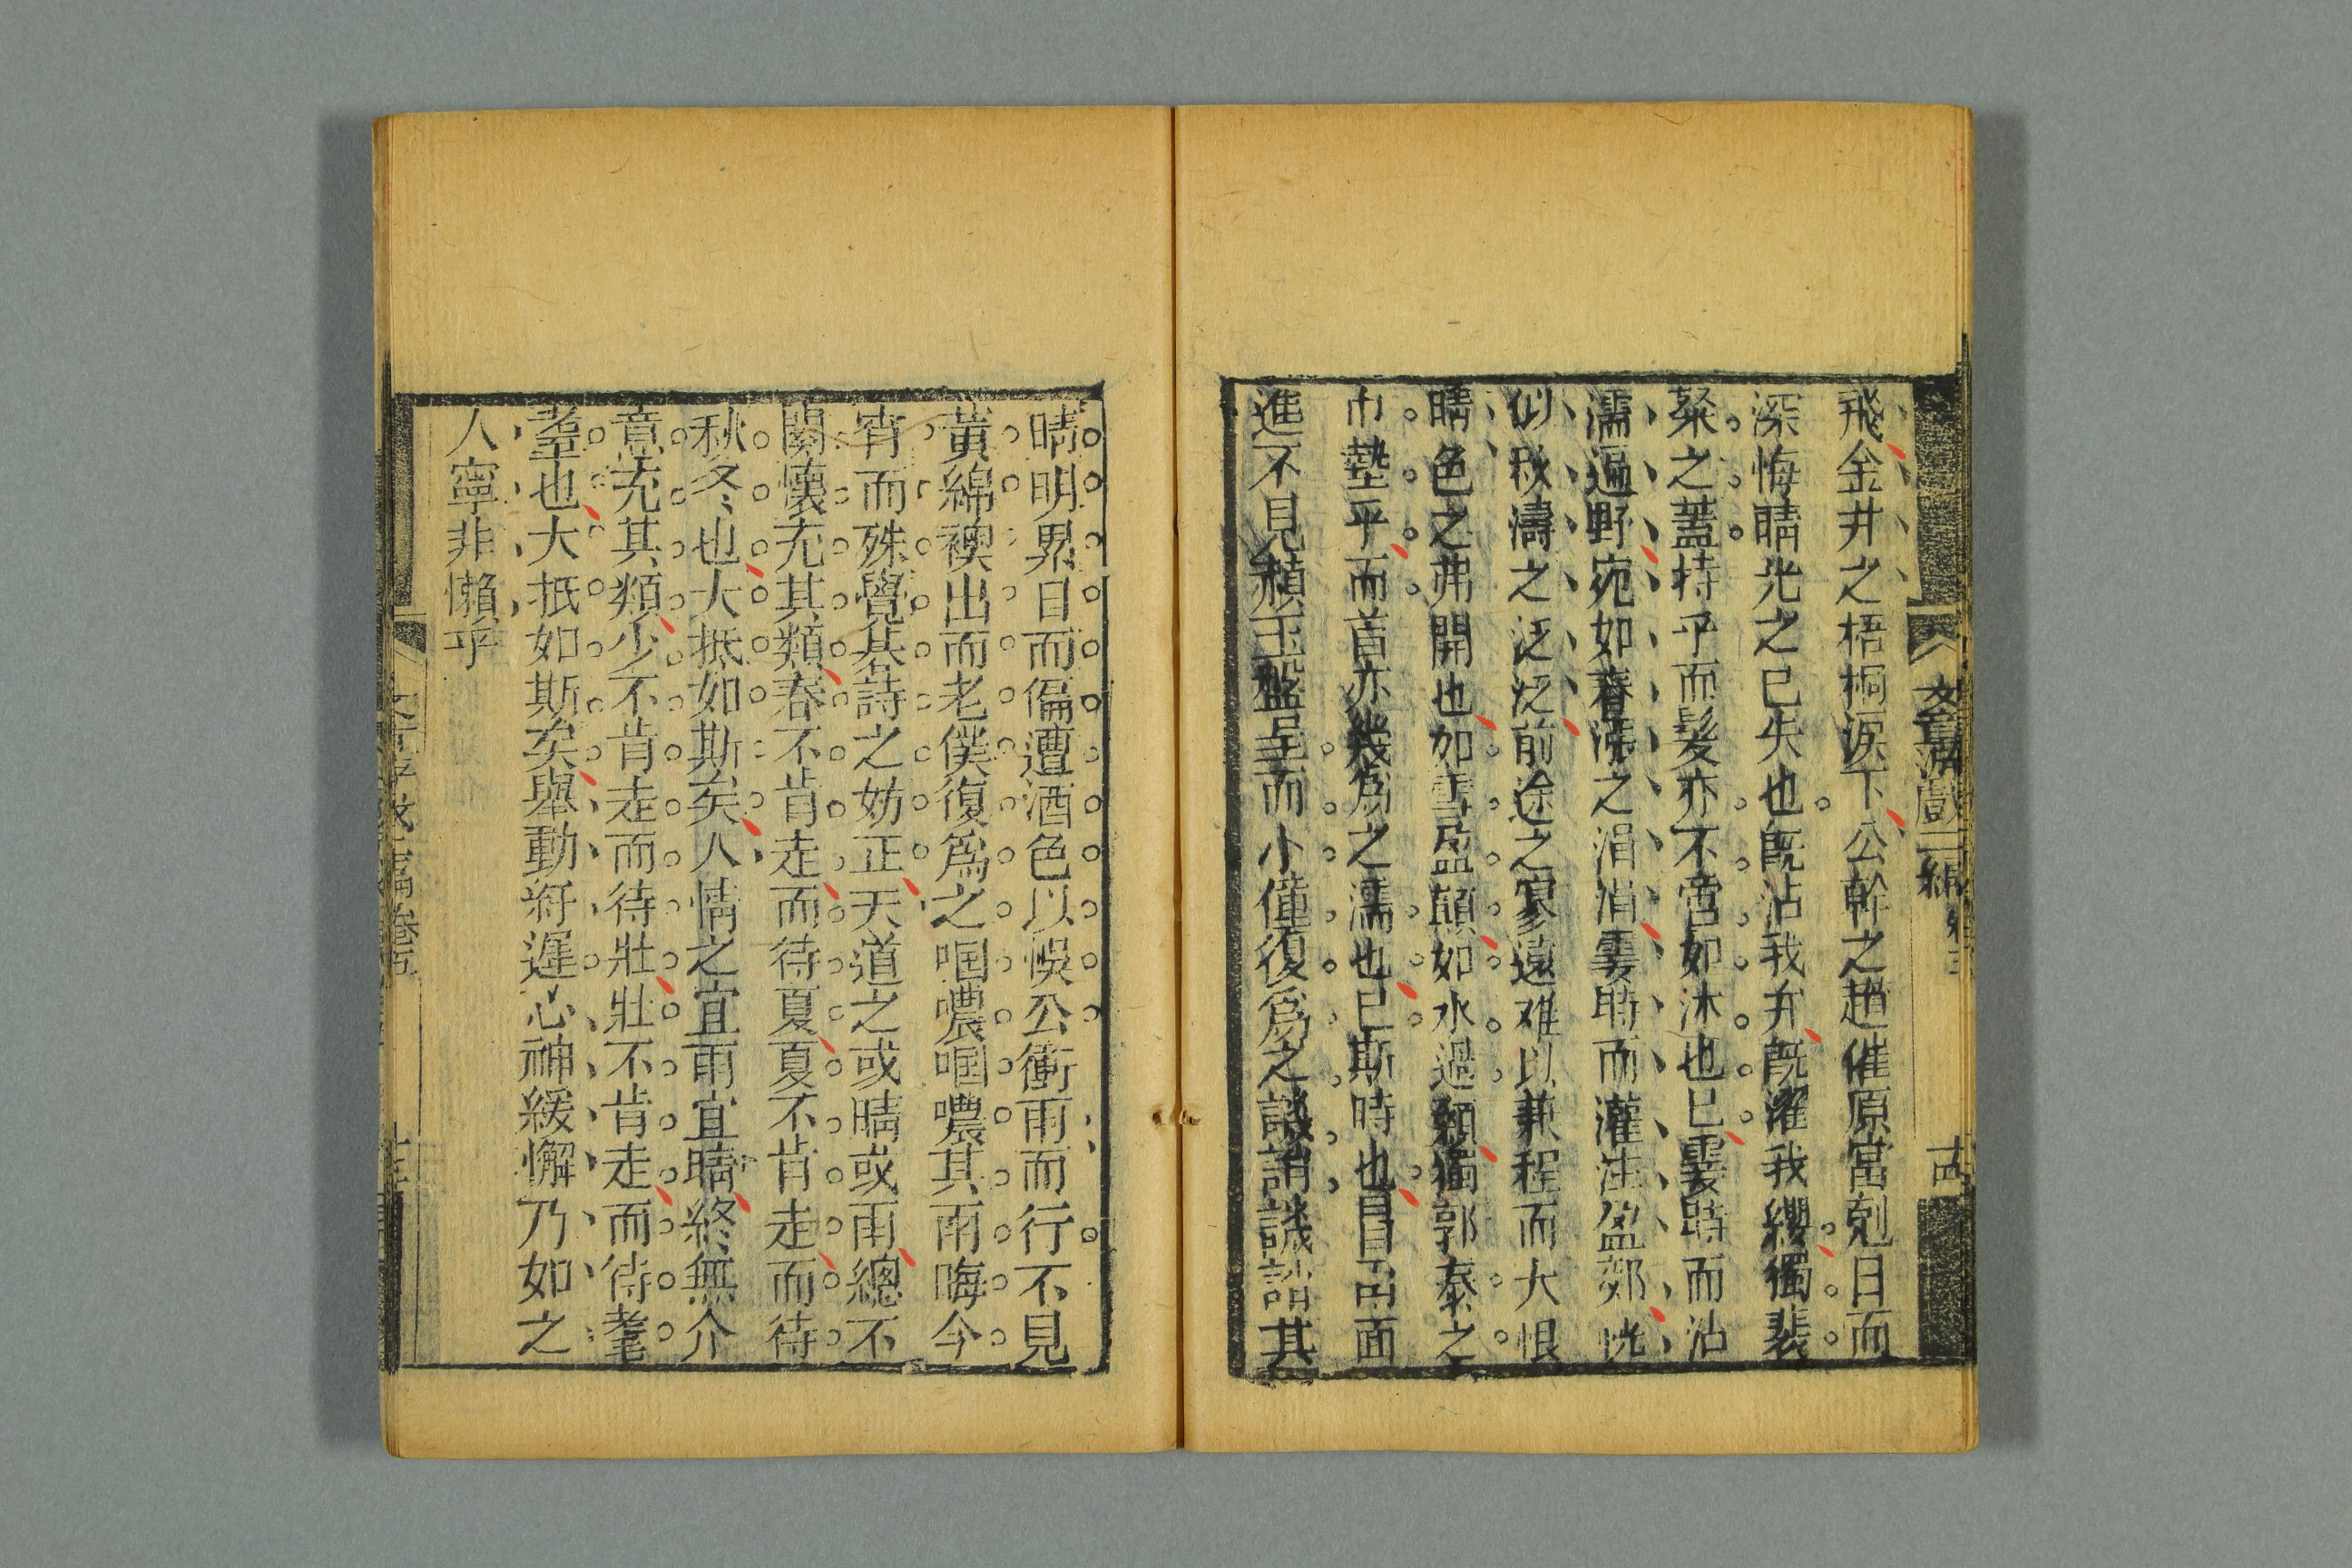 文章游戲二編 卷五 古
飛金井之梧桐淚下公幹之趙催原當剋日而
深悔晴光之已失也旣沾我弁旣濯我纓獨裴
棻之蓋持乎而髮亦不啻如沐也已霎時而沾
濡遍野宛如春漲之涓涓霎時而灌注盈郊恍
似秋濤之泛泛前途之寥遠难以兼程而大恨
晴色之弗開也如雪盈顛如水過顙獨郭泰之
巾墊乎而首亦幾爲之濡也已斯時也目函面
進不見頳玉盤呈而小僮復爲之談誚談誚其
晴明界目而偏遭酒色以悞公衝雨而行不見
黃綿襖出而老僕復爲之嘓噥嘓噥其雨晦今
宵而殊覺某詩之妨正天道之或晴或雨總不
關懷充其類春不肯走而待夏夏不肯走而待
秋冬也大抵如斯矣人情之宜雨宜晴終無介
意充其類少不肯走而待壯壯不肯走而待耄
耋也大抵如斯矣舉動紆遲心神緩懈乃如之
人寧非懶乎